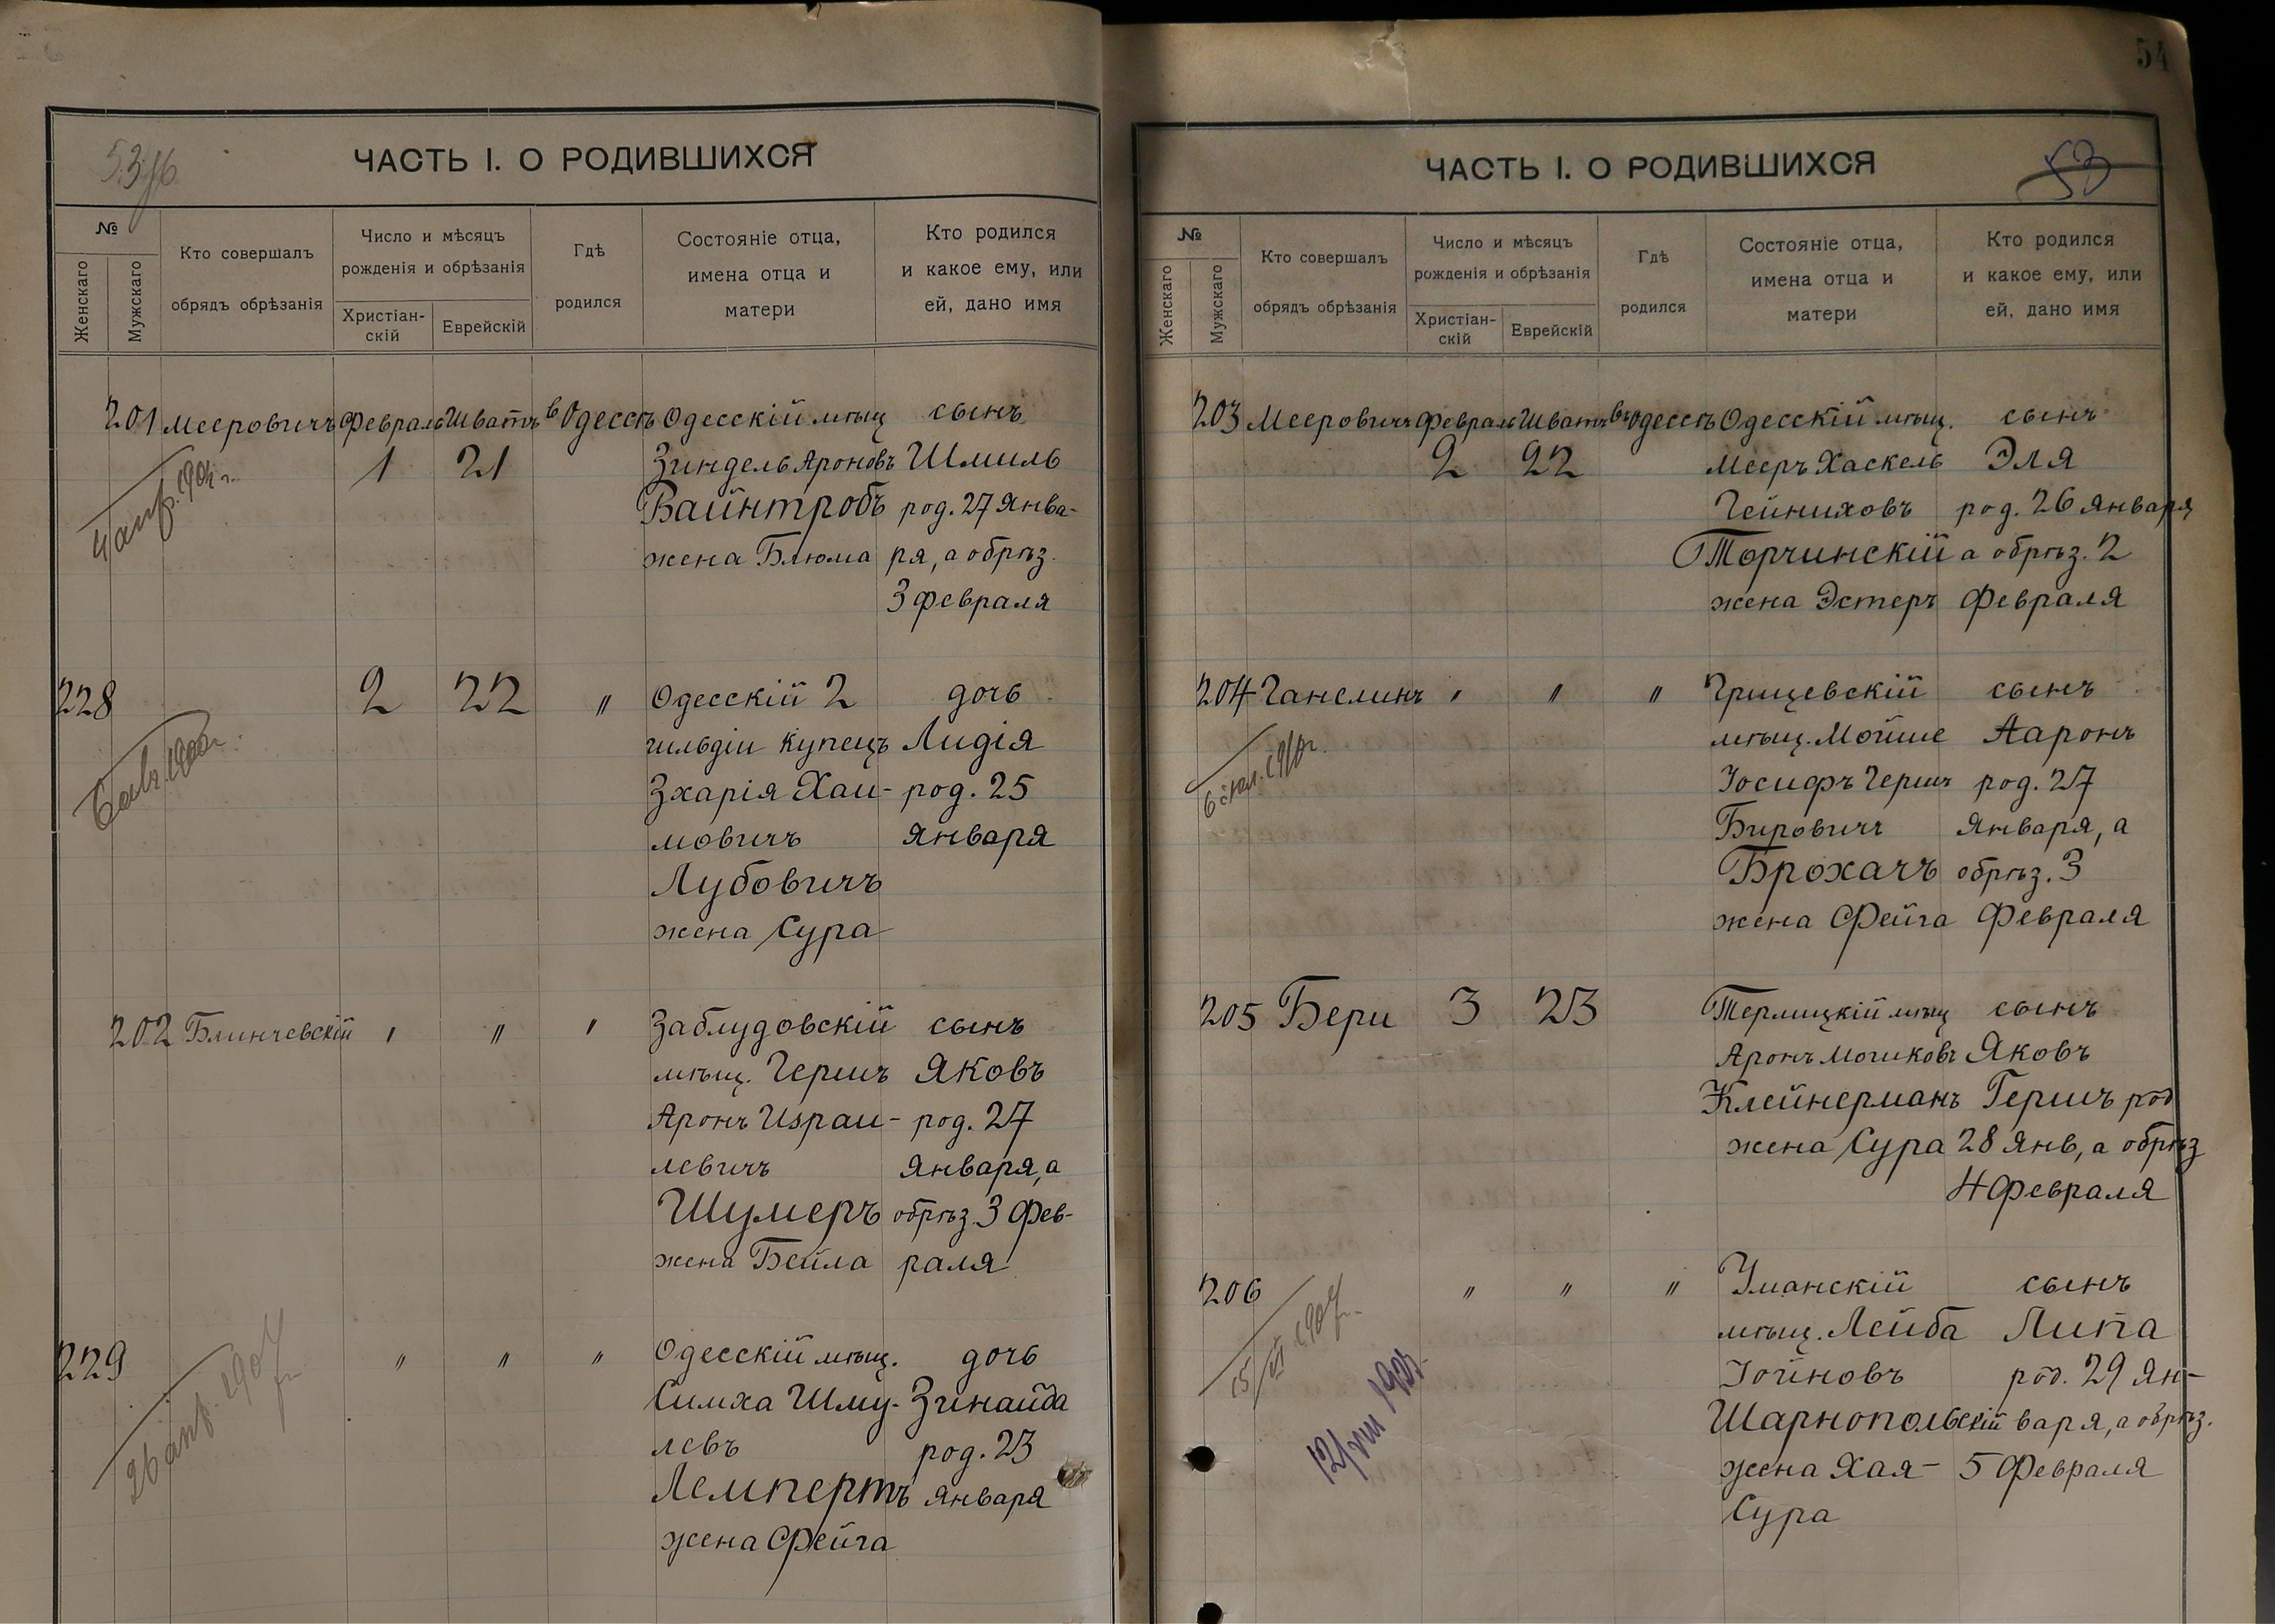 54
53
ЧАСТЬ I. О РОДИВШИХСЯ
№
Женскаго
Мужскаго
Кто совершалъ
обрядъ обрѣзанія
Число и мѣсяцъ
рожденія и обрѣзанія
Христіан-
скій
Еврейскій
Гдѣ
родился
Состояніе отца,
имена отца и
матери
Кто родился
и какое ему, или
ей, дано имя
201 Мееровичъ Февраль Шватъ в Одессѣ Одесскій мѣщ сынъ
1 21 Зиндель Ароновъ Шмиль
Вайнтробъ род. 27 Янва-
жена Блюма ря, а обрѣз.
3 февраля
228 2 22 " Одесскій 2 дочь
гильдіи купецъ Лидія
Зхарія Хаи- род. 25
мовичъ Января
Лубовичъ
жена Сура
202 Блинчевскій " " " Заблудовскій сынъ
мѣщ. Гершъ Яковъ
Аронъ Израи- род. 27
левичъ Января, а
Шумеръ обрѣз. 3 Фев-
жена Бейла раля
229 " " " Одесскій мѣщ. дочь
Симха Шму- Зинаида
левъ род. 23
Лемпертъ Января
жена Фейга
ЧАСТЬ I. О РОДИВШИХСЯ
53
№
Женскаго
Мужскаго
Кто совершалъ
обрядъ обрѣзанія
Число и мѣсяцъ
рожденія и обрѣзанія
Христіан-
скій
Еврейскій
Гдѣ
родился
Состояніе отца,
имена отца и
матери
Кто родился
и какое ему, или
ей, дано имя
203 Мееровичъ Февраль Шватъ въ Одессѣ Одесскій мѣщ. сынъ
2 22 Мееръ Хаскель Эля
Гейниховъ род. 26 Января
Торчинскій а обрѣз. 2
жена Эстеръ Февраля
204 Ганелинъ " " " Грицевскій сынъ
мѣщ. Мойше Ааронъ
Іосифъ Гершъ род. 27
Бировичъ Января, а
Брохачъ обрѣз. 3
жена Фейга Февраля
205 Бери 3 23 мѣщ сынъ
Аронъ Яковъ
Клейнерманъ Гершъ род
жена Сура 28 Янв, а обрѣз
4 Февраля
206 " " " Уманскій сынъ
мѣщ. Лейба Липа
Іойновъ род. 29 Ян-
Шарнопольскій варя, а обрѣз.
жена Хая- 5 Февраля
Сура